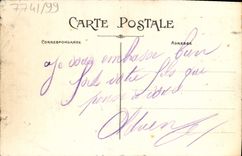 7741/99
CARTE POSTALE
CORRESPONDANCE
ADRESSE
Je vous embrasse bien
votre fils qui
pense à vous